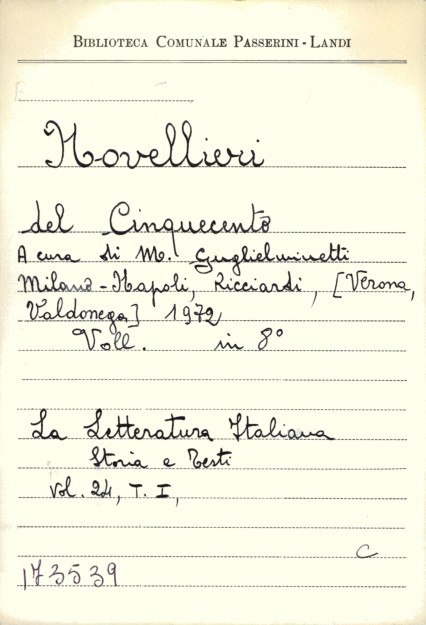 BIBLIOTECA COMUNALE PASSERINI - LANDI
Novellieri
del Cinquecento
A cura di M. Guglielminetti
Milano - Napoli, Ricciardi, [Verona,
Valdonega] 1972
Voll. in 8°
La Letteratura Italiana
Storia e Testi
Vol. 24, T. I,
C
173539